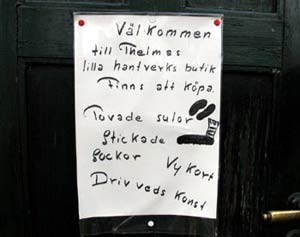 Välkommen
till Thelmas
lilla hantverks butik
Finns att köpa.
Tovade sulor
Stickade
Sockor Vykort
Drivveds Konst